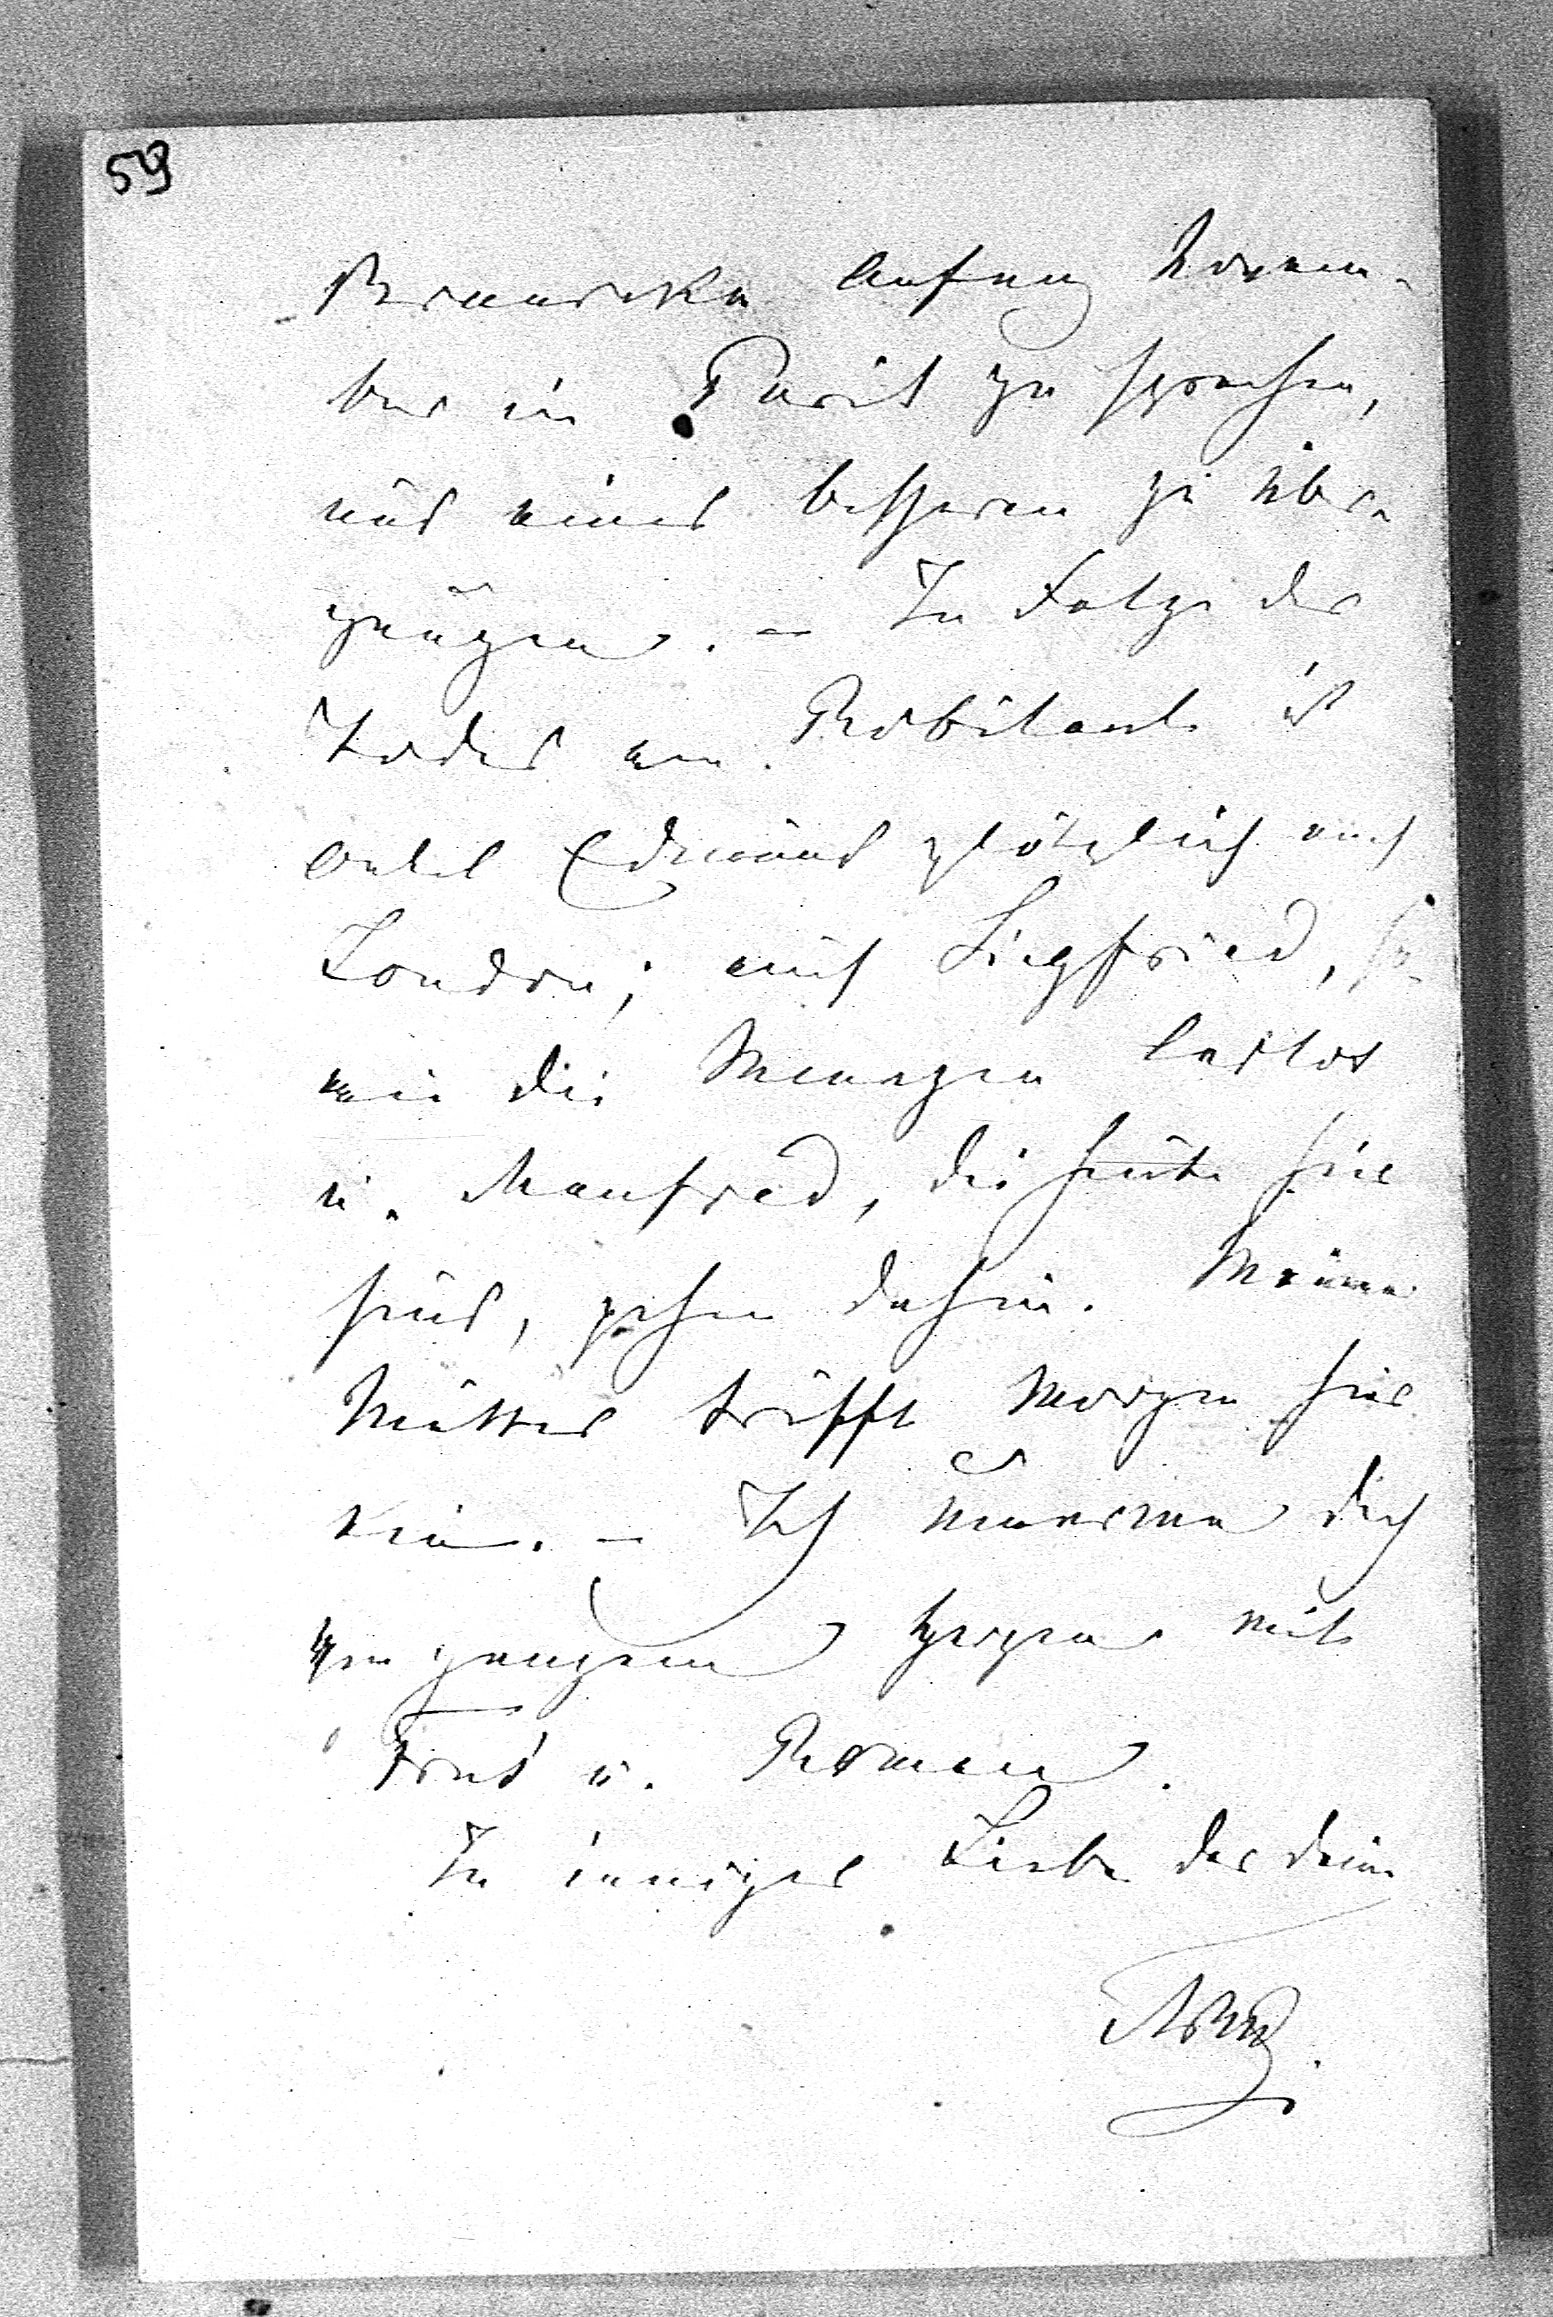 59
Branicka Anfang Novem-
ber in Paris zu sprechen,
und eines besseren zu über-
zeugen. – In Folge des
Todes von Robilant ist
Onkel Edmund plötzlich nach
London; auch Siegfried, so-
wie die Menzgen Carlos
u. Manfred, die heute hier
sind, gehen dahin. Meine
Mutter trifft Morgen hier
ein. – Ich umarme dich
von ganzem Herzen mit
Frus u. Roman.
In inniger Liebe der deine